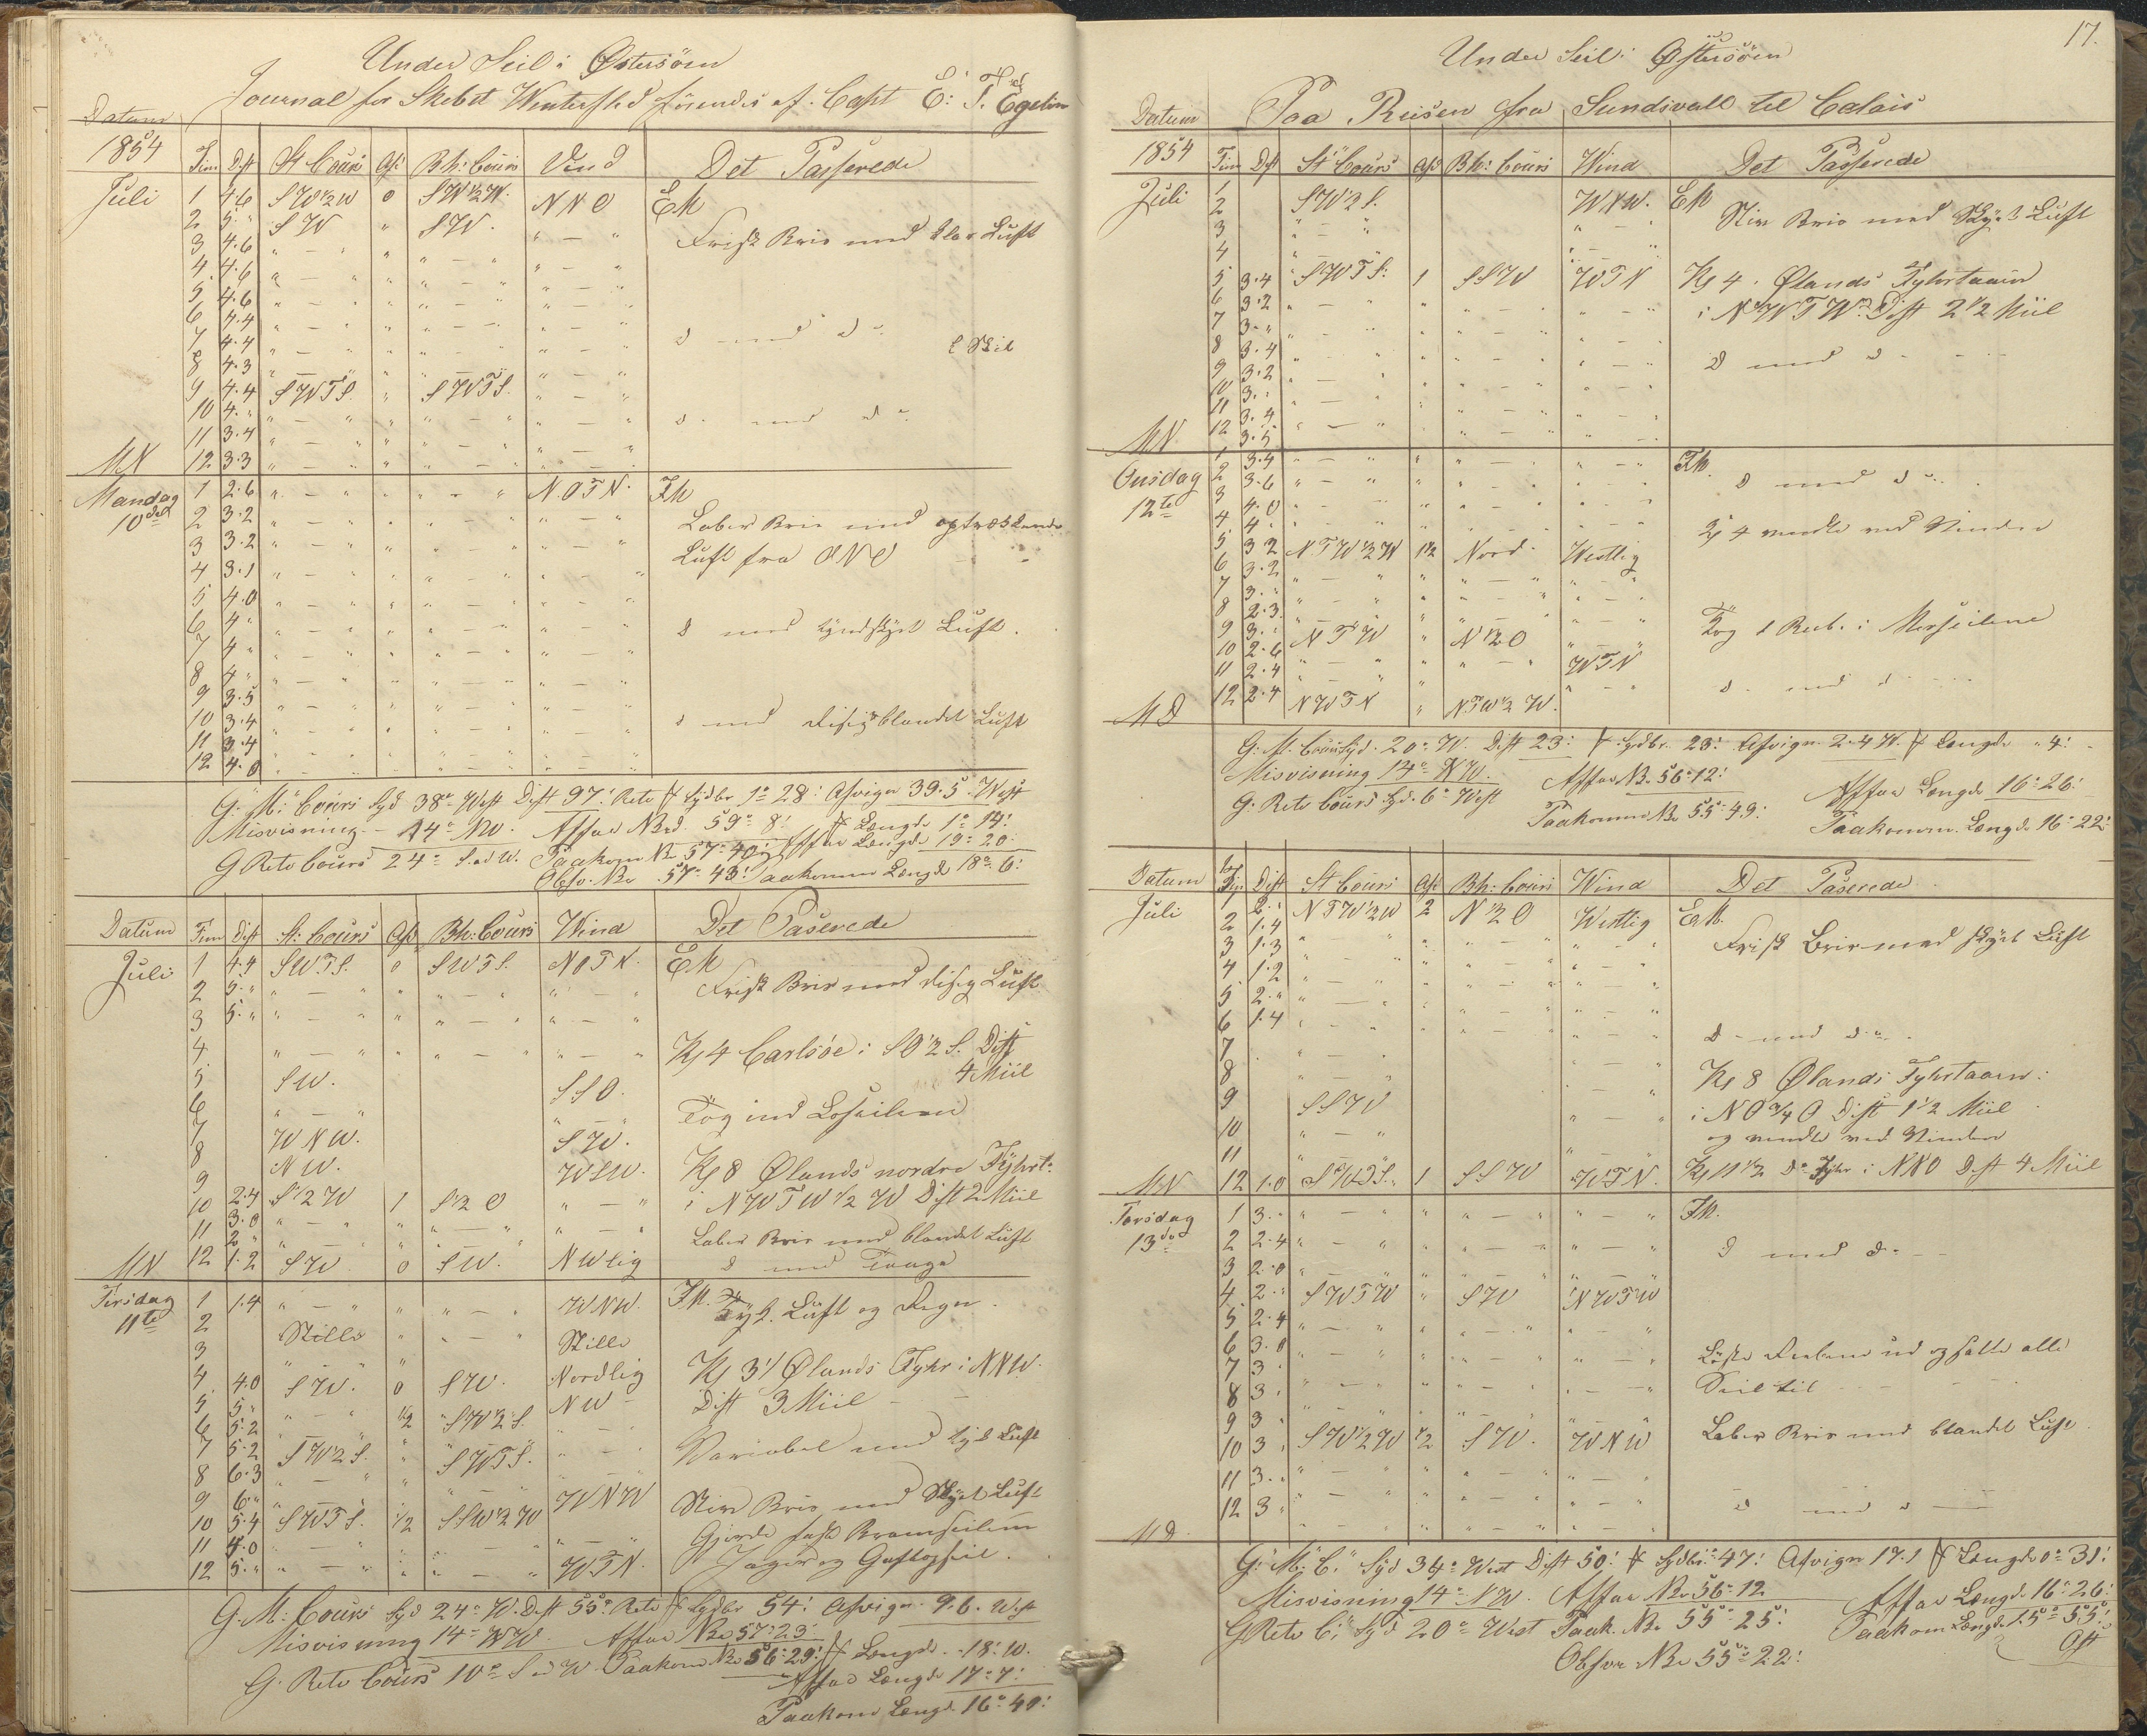 Under Seil i Østersøen
Journal for Skebet Wintersted förendes af Capt E. T. Egelin
Datum
1854 Tim Dist St Cours Afd Bh: Cours Vind Det Passerede
Juli 1 4.6 SW½W 0 SW½W. NNO EM
2 5 " SW " SW. " — "
Frisk Bris med klar Luft
3 4.6 " — " " " — " " — "
4 4.6 " — " " " — " " — "
5 4.6 " — " " " — " " — "
6 4.4 " — " " " — " " — "
7 4.4 " — " " " — " " — " d med d
8 4.3 " — " " " — " " — "
9 4.4 SWTS. " SWTS. " — "
10 4. " " — " " " — " " — "
11 3.4 " — " " " — " " — " d med d
MN 12 3.3 " — " " " — " " — "
Mandag 1 2.6 " — " " " — " NOTN. FM
10de 2 3.2 " — " " " — " " — " Laber Bris med optrækkende
3 3.2 " — " " " — " " — " Luft fra ONO
4 3.1 " — " " " — " " — "
5 4.0 " — " " " — " " — "
6 4 " " — " " " — " " — " d med tyndskyet Luft.
7 4 " " — " " " — " " — "
8 4 " " — " " " — " " — "
9 3.5 " — " " " — " " — "
10 3.4 " — " " " — " " — " d med disig blandet Luft
11 3.4 " — " " " — " " — "
12 4.0 " — " " " — " " — "
G. M: Cours Syd 38° West Dist 97' Rete f Sydbr 1° 28' Afvign 39.5 West
Misvisning - 14° NW. Affar N Brd. 59° 8' f Længde 1° 14'
G Rete Cours 24° S ad W. Paakom N Br 57° 40' Affar Længde 19° 20'
Obsv. N Br 57° 43' Paakommen Længde 18° 6'
Datum Tim Dist St: Cours Afd Bh: Cours Wind Det Paserede
Juli 1 4.4 SWTS. 0 SWTS. NOTN. EM
2 5. " " — " " " — " " — " Frisk Bris med disig Luft
3 5. " " — " " " — " " — "
4 " — " " " — " " — " Kl 4 Carlsöe i SO½S. Dist
4 Miil
5 SW. SSO.
6 " — " " — " Tog ind Leseilene
7 WNW. SW.
8 NW. WSW. Kl 8 Ølands nordre Fyhrt.
9 2.4 S½W 1 S½O " — " i NWTW½W Dist 2 Miil
10 3.0 " — " " " — " " — "
11 2 " " — " " " — " Laber Bris med blandet Luft
MN 12 1.2 SW 0 SW. NWlig d med Taage
Tirsdag 1 1.4 " — " " " — " WNW. FM. Tyk Luft og Regn.
11te 2 Stille " " — " Stille
3 " — " " Nordlig Kl 3½ Ølands Fyhr i NNW.
4 4.0 SW. 0 SW. NW Dist 3 Miil
5 5 " " — " ½ SW½S. " — "
6 5.2 " — " " " — "
7 5.2 SW½S. " SWTS. " — " Variabel med tyk Luft
8 6.3 " — " " " — "
9 6. " " — " " WNW Stiv Bris med Skyet Luft
10 5.4 SWTS. ½ SSW½W " — " Gjorde fast Bramseilene
11 4.0 " — " " " — " " — " Jager og Gaftopseil.
12 5. " " — " " " — " WTN.
G. M: Cours Syd 24° W. Dist 55' Rete f Sydbr 54' Afvign. 9.6. West
Misvisning 14° NW. Affar N Br 57° 23'
G. Rete Cours 10° S ad W Paakom N Br 56° 29' f Længde - 18' 10.
Affar Længde 17° 7'
Paakom Længd. 16° 49'
17.
Under Seil i Østersöen
Paa Reisen fra Sundsvall til Calais
Datum
1854 Tim Dist St Cours Afd Bh: Cours Wind Det Passerede
Juli 1 SW½S. WNW. EM
2 " — " " — " Stiv Bris med Skyet Luft
3 " — "
4 " — "
5 3.4 SWTS. 1 SSW WTN Kl 4. Ølands Fyhrtaarn
6 3.2 " — " " " — " " — " i NWTW Dist 2½ Miil
7 3. " " — " " " — " " — "
8 3.4 " — " " " — " " — " d med d
9 3.2 " — " " " — " " — "
10 3. " " — " " " — " " — "
11 3.4 " — " " " — " " — "
MN 12 3.5 " — " " " — " " — "
Onsdag 1 3.4 " — " " " — " " — " FM.
12te 2 3.6 " — " " " — " " — " d med d
3 4.0 " — " " " — " " — "
4 4 " " — " " " — " " — " Kl 4 vendte ved Vinden
5 3.2 NTW½W 1½ Nord Westlig
6 3.2 " — " " " — " " — "
7 3. " " — " " " — " " — "
8 2.3 " — " " " — " " — "
9 3. " NTW " N½O " — " Tog 1 Reb. i Merseilene
10 2.6 " — " " " — " WTN
11 2.4 " — " " " — "
MD 12 2.4 NWTN " NTW½W. " — " d med d
G. M. Cours Syd. 20° W. Dist 23' f Sydbr. 23' Afvign 2.4 W. f Længde " 4'
Misvisning 14° NW. Affar N Br 56° 12' Affar Længde 16° 26'
G. Rete Cours Syd. 6° West Paakommen N Br 55° 49' Paakommen Længde 16° 22'
Datum Tim Dist St Cours Afd Bh: Cours Wind Det Paserede
Juli 1 2. " NTW½W 2 N½O Westlig EM.
2 1.4 " — " " " — " " — " Frisk Bris med skyet Luft
3 1.3 " — " " " — " " — "
4 1.2 " — " " " — " " — "
5 2. " " — " " " — " " — "
6 1.4 " — " " " — " " — " d med d
7 " — " " — "
8 " — " " — " Kl 8 Ølands Fyhrtaarn
9 SSW " — " i NO¾O Dist 1½ Miil
10 " — " " — " og vendte ved Vinden
11 " — " " — "
MN 12 1.0 SWTS. 1 SSW WTN. Kl 11½ Do Fyhr i NNO Dist 4 Miil
Torsdag 1 3. " " — " " " — " " — " FM.
13de 2 2.4 " — " " " — " " — " d med d
3 2.0 " — " " " — " " — "
4 2. " SWTW " SW NWTW
5 2.4 " — " " " — " " — "
6 3.0 " — " " " — " " — " Löste Rebene ud og satte alle
7 3 " " — " " " — " " — " Seil til
8 3 " " — " " " — " " — "
9 3 " " — " " " — " " — "
10 3 " SW½W ½ SW. WNW Laber Bris med blandet Luft
11 3. " " — " " " — " " — "
12 3 " " — " " " — " " — " d med d
MD
G. M: C. Syd 34° West Dist 50' f Sydbr. 47' Afvign 17.1 f Længde 0° 31'
Misvisning 14° NW. Affar N Br 56° 12 Affar Længde 16° 26'
G Rete C. Syd 20° West Paak. N Br 55° 25' Paakom Længde 15° 55'
Ost
Obsvr N Br 55° 22'